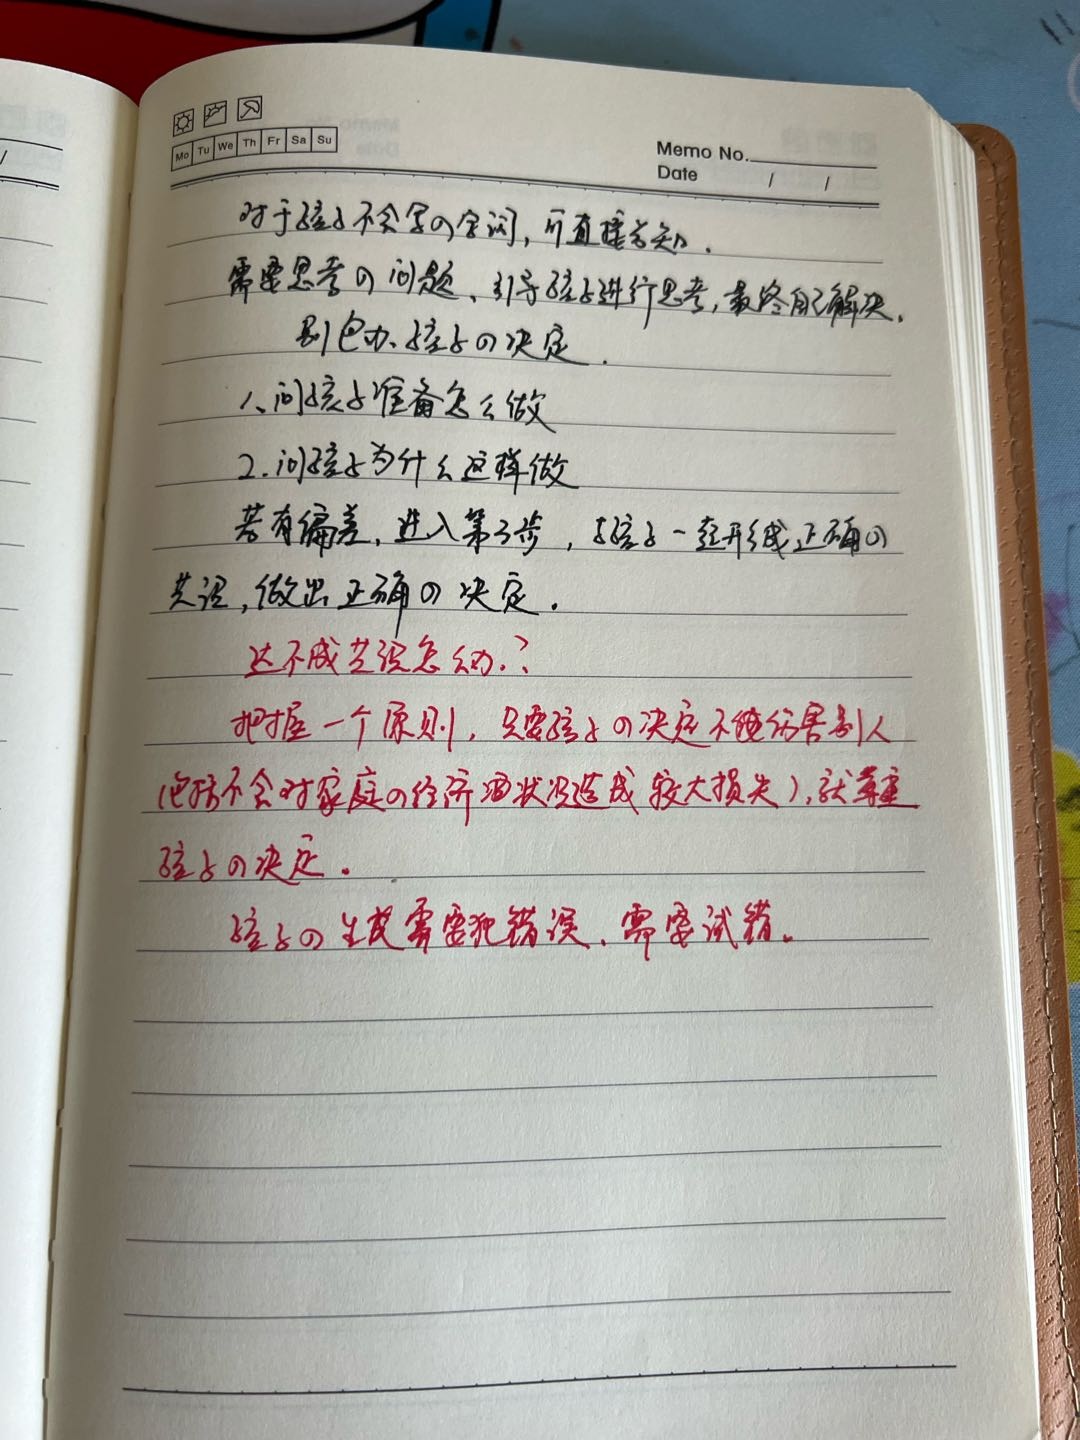 Mo Tu We Th Fr Sa Su
Memo No.
Date / /
对于孩子不会写的字词，可直接告知.
需要思考的问题、引导孩子进行思考，最终自己解决.
别包办孩子的决定.
1、问孩子准备怎么做
2.问孩子为什么这样做
若有偏差，进入第3步，与孩子一起形成正确的
共识，做出正确的决定.
达不成共识怎么办？
把握一个原则，只要孩子的决定不能伤害别人
(包括不会对家庭的经济状况造成较大损失)，就尊重
孩子的决定.
孩子的生长需要犯错误、需要试错。